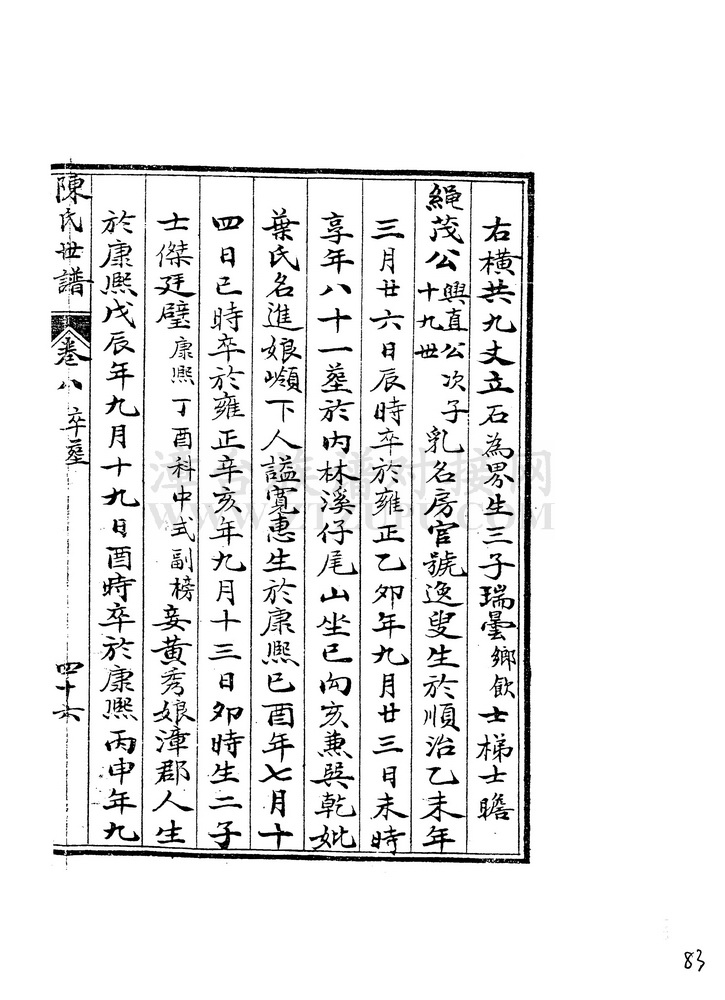 右橫共九丈立石為界生三子瑞曇鄉飲士梯士瞻
繩茂公興直公次子十九世乳名房官號逸叟生於順治乙未年
三月廿六日辰時卒於雍正乙卯年九月廿三日未時
享年八十一墓於內林溪仔尾山坐巳向亥兼巽乾妣
葉氏名進娘嶺下人諡寬惠生於康熙己酉年七月十
四日巳時卒於雍正辛亥年九月十三日卯時生二子
士傑廷璧康熙丁酉科中式副榜妾黃秀娘漳郡人生
於康熙戊辰年九月十九日酉時卒於康熙丙申年九
陳氏世譜 卷八 卒塟 四十六
83